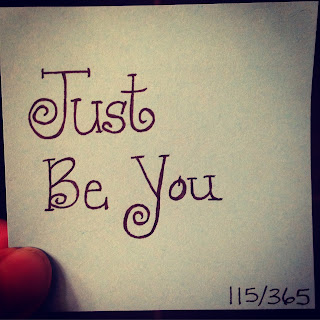 Just
Be You
115/365